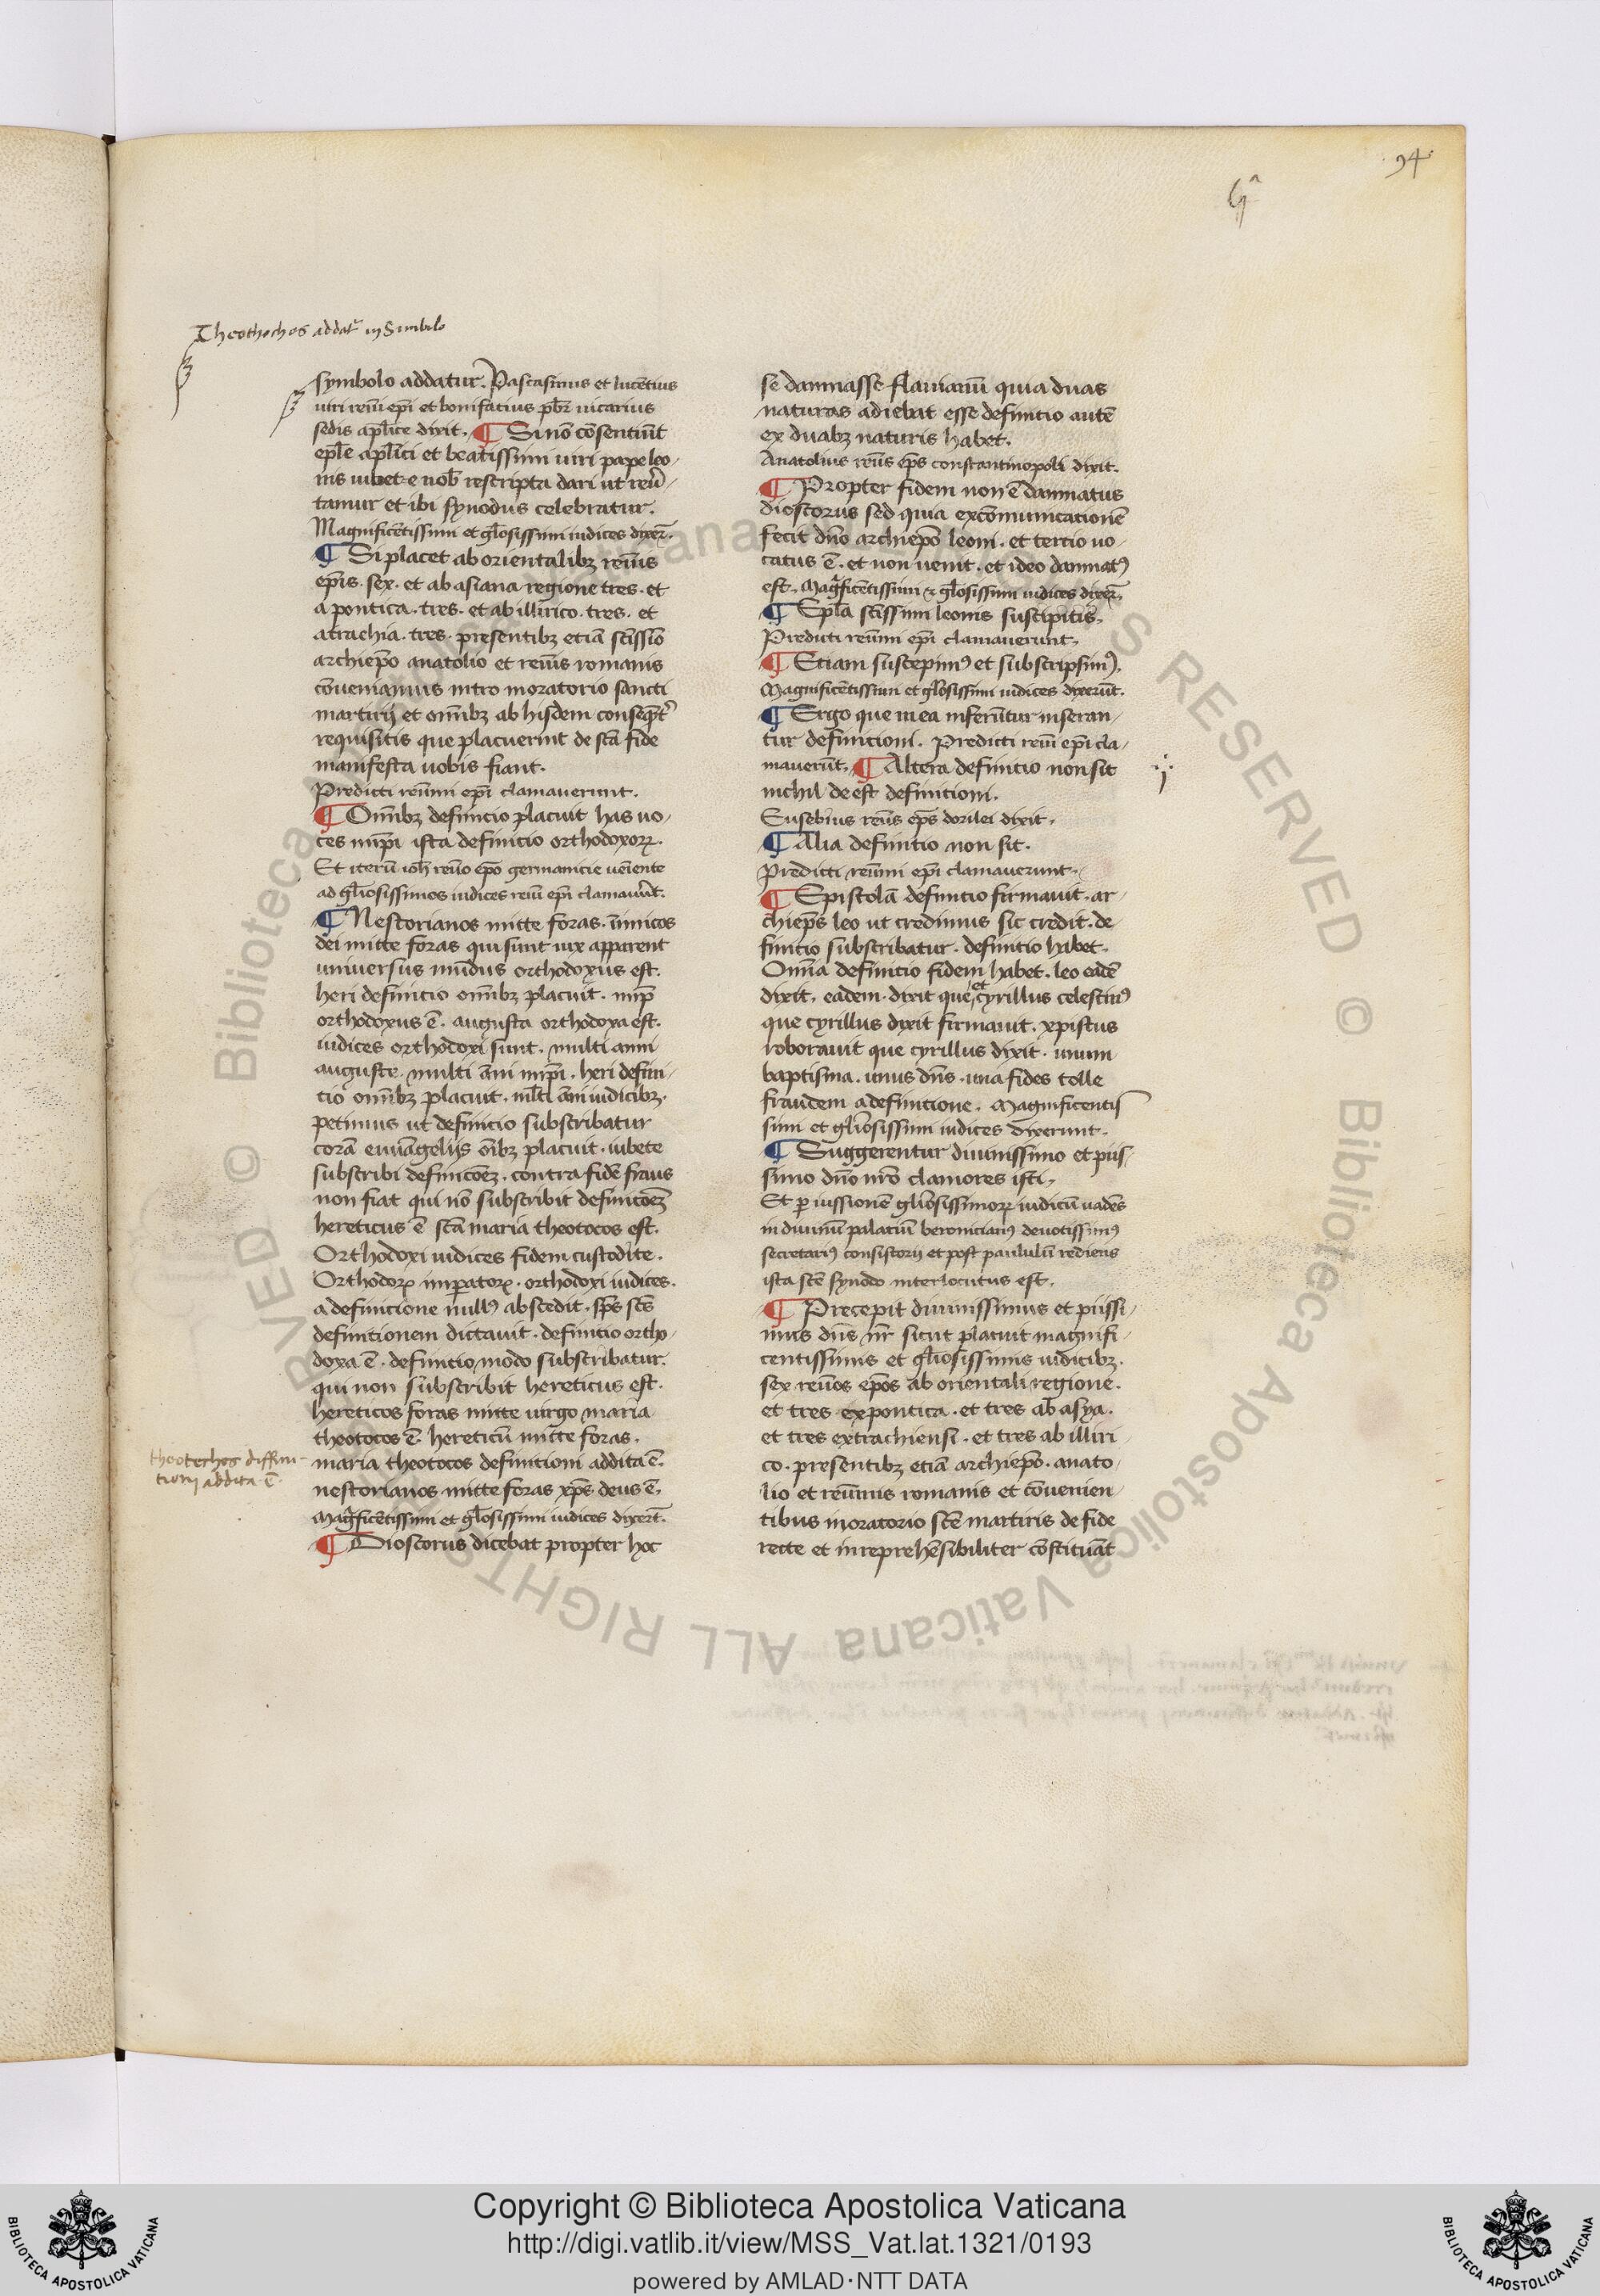 94
Theothochos addat᷑ in Simbolo
symbolo addatur. Pascasinus et lucētius
uiri reuī ep̄i et bonifatius pb̄r uicarius
sedis apl̄ice dixit. ¶ Si nō cōsentiūt
epl̄e apl̄ici et beatissimi uiri pape leo-
nis iubete nob̄ rescripta dari ut reūꝰ-
tamur et ibi synodus celebratur.
Magnificētissimi et gl̄osissimi iudices dixer̄.
¶ Si placet ab orientalibꝫ reūis
ep̄is . sex . et ab asiana regione tres . et
a pontica . tres . et ab illirico . tres . et
a trachia . tres . presentibꝫ etiā sc̄issīo
archiep̄o anatolio et reūis romanis
cōueniamus intro moratorio sancti
martirij et om̄ibꝫ ab hisdem conseq̄ēt᷑
requisitis que placuerint de sc̄a fide
manifesta uobis fiant.
Predicti reūmi ep̄i clamauerunt.
¶ Om̄ibꝫ definicio placuit has uo-
ces imp̄i ista definicio orthodoxoꝝ.
Et iterū ioh̄ reūo ep̄o germanicie ueīente
ad gl̄iosissimos iudices reuī ep̄i clamauer̄t.
¶ Nestorianos mitte foras . inīmicos
dei mitte foras qui sunt uix apparent
universus mūdus orthodoxus est.
heri definitio om̄ibꝫ placuit . imp̄
orthodoxus ē . augusta orthodoxa est.
iudices orthodoxi sunt . multi anni
auguste . multi an̄i imp̄i . heri defini-
tio om̄ibꝫ placuit . ml̄ti an̄i iudicibꝫ.
petimus ut definicio subscribatur
corā euuāgelijs oībꝫ placuit . iubete
subscribi definicōeꝫ . contra fidē fraus
non fiat qui nō subscribit definicōeꝫ
hereticus ē sc̄a maria theotocos est.
Orthodoxi iudices fidem custodite.
Orthodoxꝝ imperatoꝝ . orthodoxi iudices.
a definicione nullꝰ abscedit . sp̄s sc̄s
definitionem dictauit . definitio ortho-
doxa ē . definitio modo subscribatur.
qui non subscribit hereticus est.
hereticos foras mitte uirgo maria
theotocos ē. hereticū mitte foras.
maria theotocos definitioni addita ē.
theotechos diffini-
tionj addita ē.
nestorianos mitte foras xp̄s deus ē.
Magn̄ficētissimi et gl̄osissimi iudices dixer̄t.
¶ Dioscorus dicebat propter hoc
se damnasse flauianū quia duas
naturas adiebat esse definitio autē
ex duabꝫ naturis habet.
Anatolius reūs ep̄s constantinopoli dixit.
¶ Propter fidem non ē damnatus
dioscorus sed quia excōmunicationē
fecit dn̄o archiep̄o leoni . et tertio uo-
catus ē . et non uenit . et ideo damnatꝰ
est. Magn̄ficētissimi & gl̄osissimi iudices dixer̄.
¶ Epl̄a sc̄issimi leonis suscipitis.
Predicti reūmi ep̄i clamauerunt.
¶ Etiam suscepimꝰ et subscripsimꝰ.
Magnificētissimi et gl̄osissimi iudices dixerūt.
¶ Ergo que in ea inferūtur inseran-
tur definitioni. Predicti reuī ep̄i cla-
mauerūt. ¶ Altera definitio non sit
nichil deest definitioni.
Eusebius reūs ep̄s dorilei dixit.
¶ Alia definitio non sit.
Predicti reūmi ep̄i clamauerunt.
¶ Epistolā definitio firmauit . ar-
chiep̄s leo ut credimus sic credit . de-
finitio subscribatur . definitio habet.
Omīa definitio fidem habet . leo eadē
dixit. eadem . dixit que et cyrillus celestinꝰ
que cyrillus dixit firmauit . xpistus
roborauit que cyrillus dixit . unum
baptisma . unus dn̄s . una fides tolle
fraudem a definitione. Magnificentis
simi et gl̄iosissimi iudices dixerunt.
¶ Suggerentur diuinissimo et piis-
simo dn̄o nr̄o clamores isti.
Et ꝑ iussionē gl̄iosissimoꝝ iudicū uadēs
in diuinū palatiū beronicianꝰ deuotissimꝰ
secretariꝰ consistorij et post paululū rediens
ista sc̄e synodo interlocutus est.
¶ Precepit diuinissimus et piissi-
mus dn̄s nr̄ sicut placuit magnifi-
centissimis et gl̄iosissimis iudicibꝫ.
sex reūos ep̄os ab orientali regione.
et tres ex pontica . et tres ab asya.
et tres ex trachiensi . et tres ab illiri-
co . presentibꝫ etiā archiep̄o . anato-
lio et reūmis romanis et cōuenien-
tibus moratorio sc̄e martiris de fide
recte et inreprehēsibiliter cōstituāt
Copyright © Biblioteca Apostolica Vaticana
http://digi.vatlib.it/view/MSS_Vat.lat.1321/0193
powered by AMLAD·NTT DATA
BIBLIOTECA APOSTOLICA VATICANA
BIBLIOTECA APOSTOLICA VATICANA
© Biblioteca Apostolica Vaticana ALL RIGHTS RESERVED